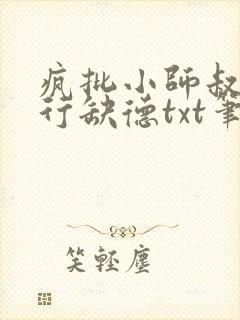 疯批小師叔
行缺德txt筆
笑輕塵